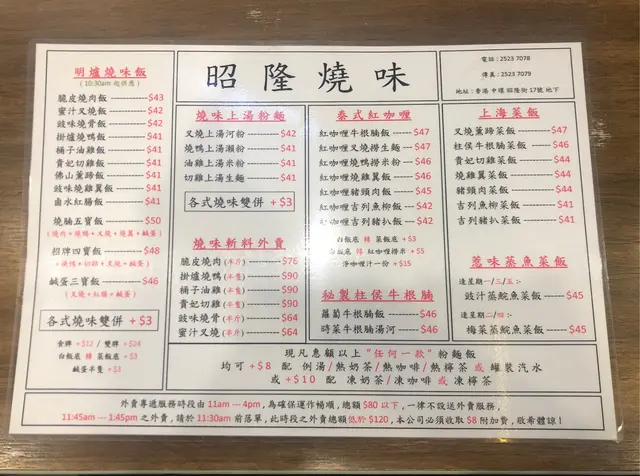 昭隆燒味
電話：2523 7078
傳真：2523 7079
地址：香港 中環 昭隆街 17號 地下
明爐燒味飯
(10:30am 起供應)
脆皮燒肉飯 $43
蜜汁叉燒飯 $42
豉味燒骨飯 $42
掛爐燒鴨飯 $41
桶子油雞飯 $41
貴妃切雞飯 $41
佛山薰蹄飯 $41
豉味燒雞翼飯 $41
鹵水紅腸飯 $41
燒腩五寶飯 $50
(燒肉+燒鴨+叉燒+燒翼+鹹蛋)
招牌四寶飯 $48
(燒鴨+切雞+叉燒+鹹蛋)
鹹蛋三寶飯 $46
(叉燒+紅腸+鹹蛋)
各式燒味雙併 + $3
食牌 +$12 / 雙牌 +$24
白飯底 轉 菜飯底 +$3
鹹蛋半隻 +$3
燒味上湯粉麵
叉燒上湯河粉 $42
燒鴨上湯瀨粉 $41
油雞上湯米粉 $41
切雞上湯生麵 $41
各式燒味雙併 + $3
燒味斬料外賣
脆皮燒肉(半斤) $76
掛爐燒鴨(半隻) $90
桶子油雞(半隻) $90
貴妃切雞(半隻) $90
豉味燒骨(半斤) $64
蜜汁叉燒(半斤) $64
泰式紅咖喱
紅咖喱牛根腩飯 $47
紅咖喱叉燒撈生麵 $47
紅咖喱燒鴨撈米粉 $46
紅咖喱燒雞翼飯 $46
紅咖喱豬頸肉飯 $45
紅咖喱吉列魚柳飯 $42
紅咖喱吉列豬扒飯 $42
白飯底 轉 菜飯底 +$3
白飯底 轉 紅咖喱撈米粉 +$5
淨咖喱汁一份 +$15
秘製柱侯牛根腩
蘿蔔牛根腩飯 $46
時菜牛根腩湯河 $46
上海菜飯
叉燒薰蹄菜飯 $47
柱侯牛根腩菜飯 $46
貴妃切雞菜飯 $44
燒雞翼菜飯 $44
豬頸肉菜飯 $44
吉列魚柳菜飯 $41
吉列豬扒菜飯 $41
惹味蒸魚菜飯
逢星期一/三/五:-
豉汁蒸鯇魚菜飯 $45
逢星期二/四:-
梅菜蒸鯇魚菜飯 $45
現凡惠顧以上"任何一款"粉麵飯
均可 +$8 配 例湯/熱奶茶/熱咖啡/熱檸茶 或 罐裝汽水
或 +$10 配 凍奶茶/凍咖啡 或 凍檸茶
外賣專遞服務時段由 11am --- 4pm，為確保運作暢順，總額 $80 以下，一律不設送外賣服務，
11:45am --- 1:45pm 之外賣，請於 11:30am 前落單，此時段之外賣總額低於 $120，本公司必須收取 $8 附加費，敬希體諒！